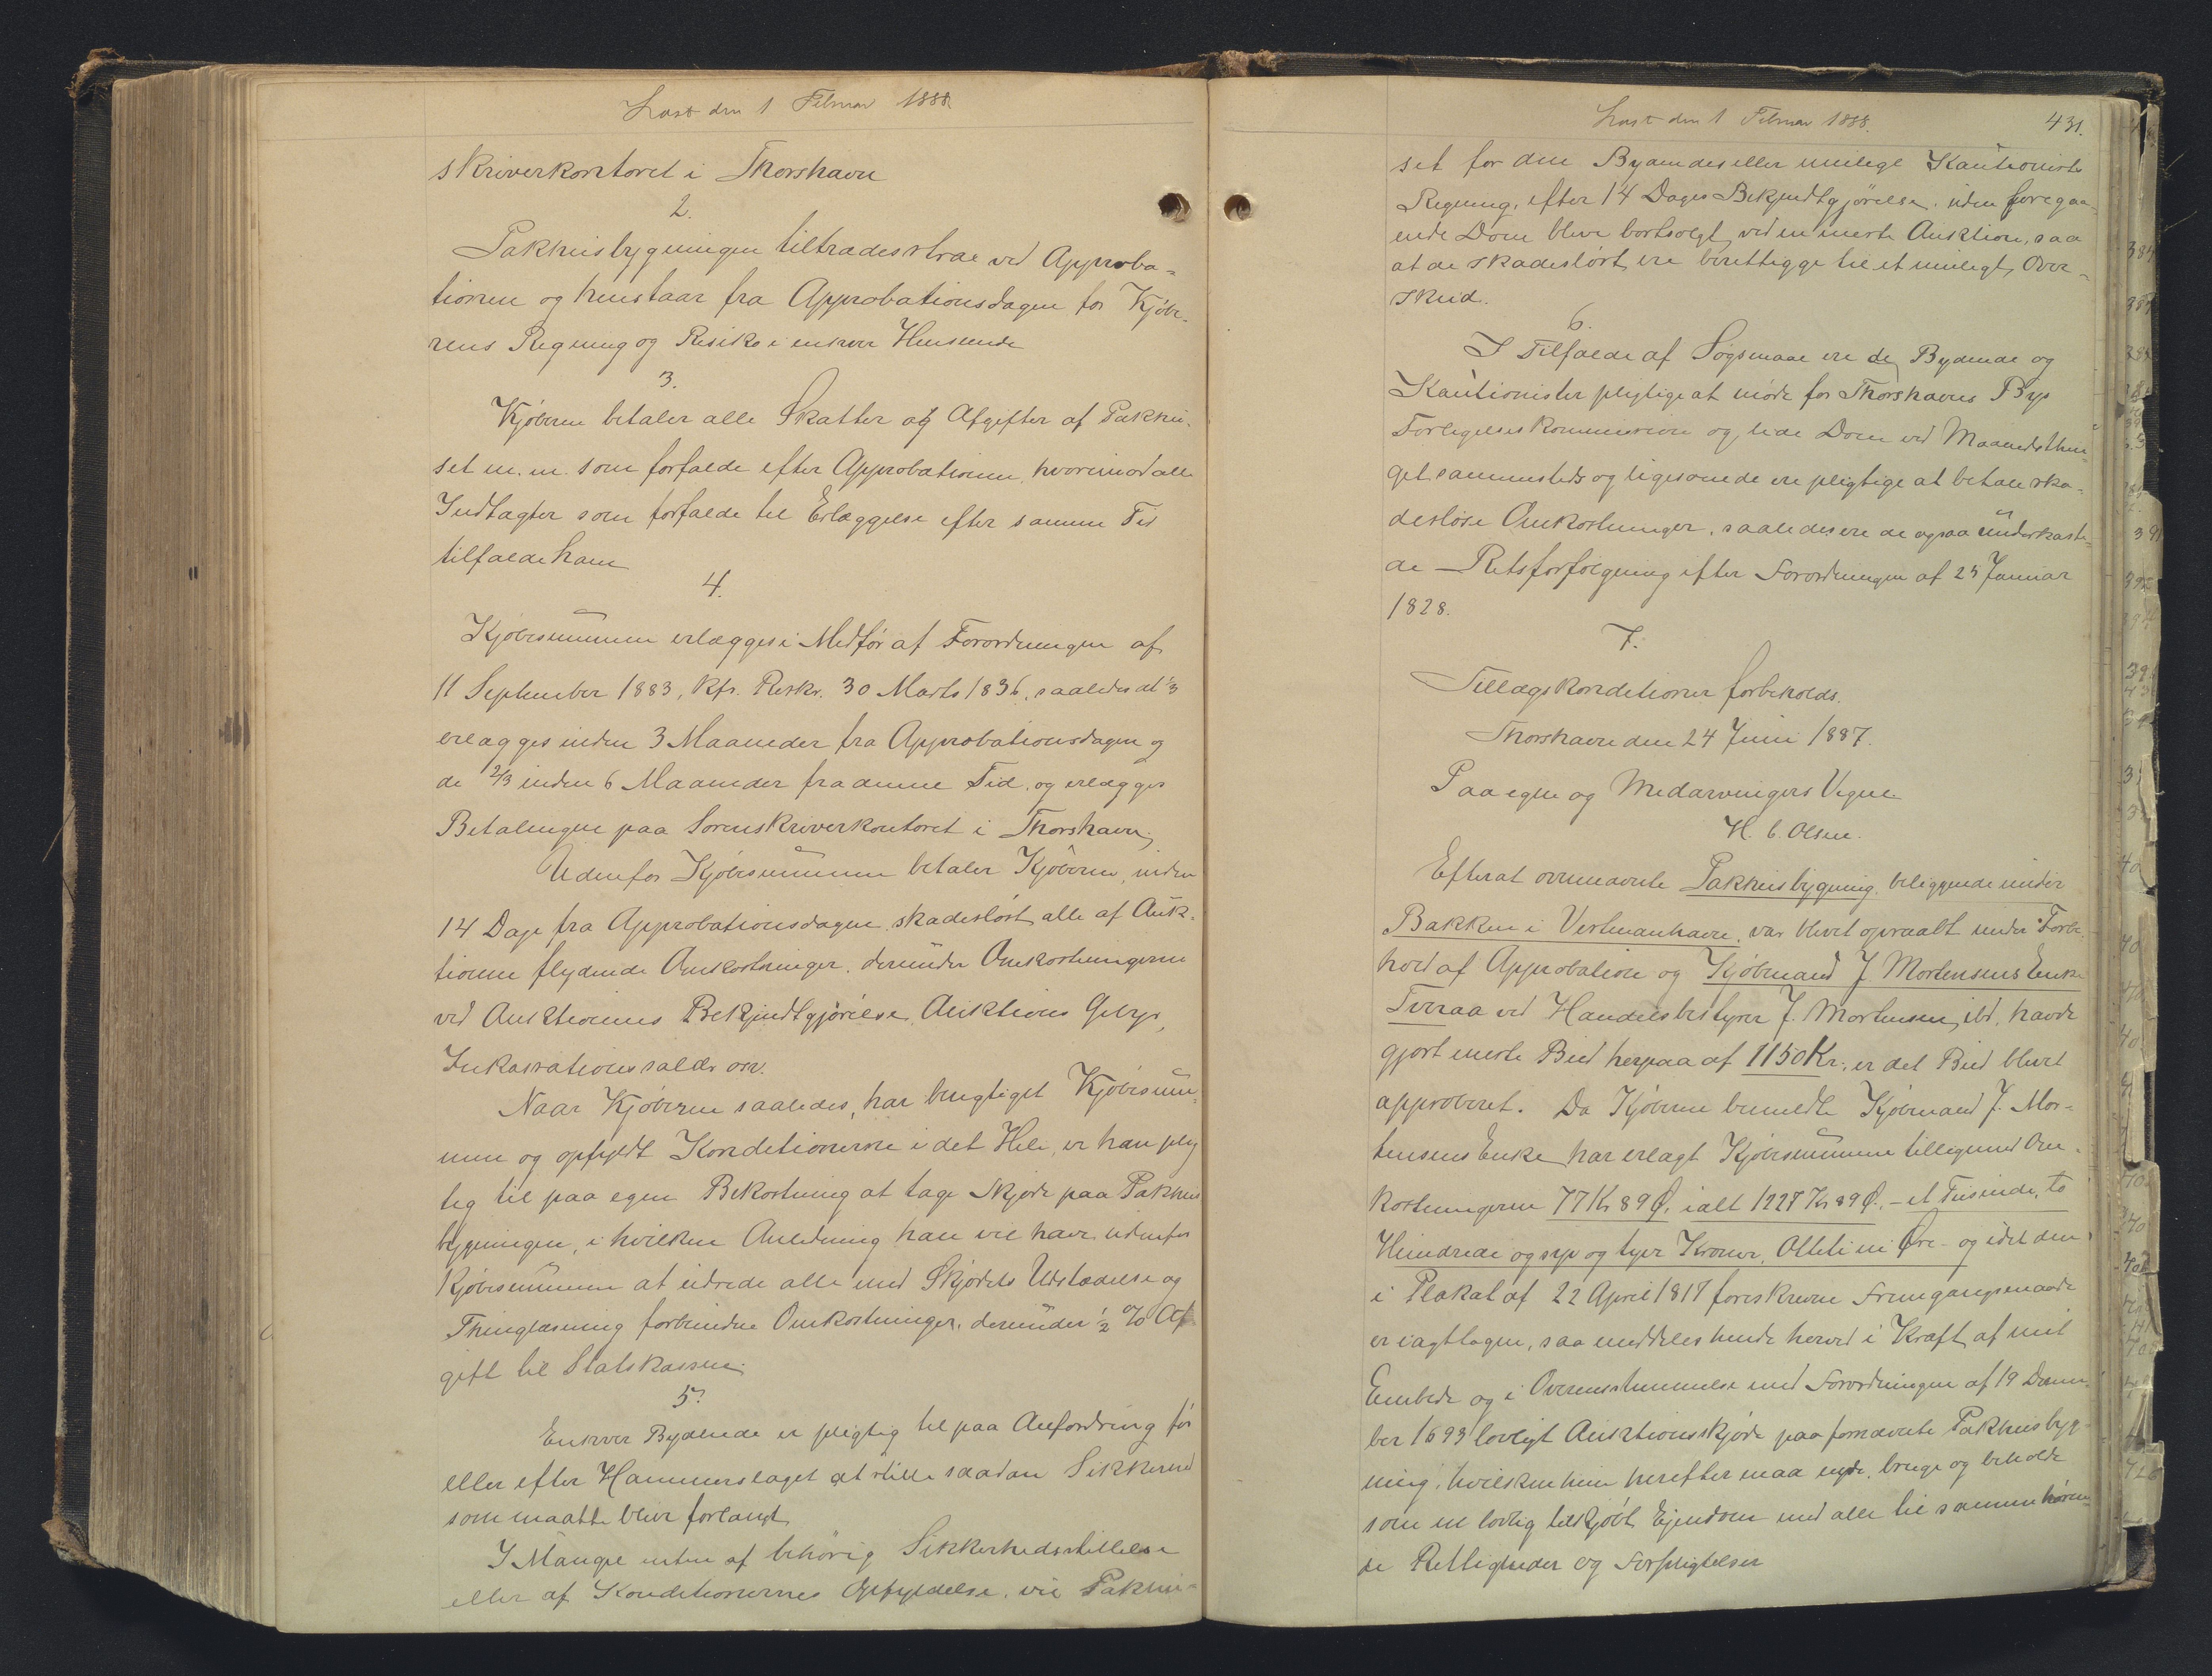 Læst den 1 Februar 1888.
skriverkontoret i Thorshavn
2.
Pakhusbygningen tiltrædes strax ved Approba-
tionen og henstaar fra Approbationsdagen for Kjøbe-
rens Regning og Risiko i enhver Henseende
3.
Kjøberen betaler alle Skatter og Afgifter af Pakhu-
set m.m. som forfalde efter Approbationen, hvorimod alle
Indtægter som forfalde til Erlæggelse efter samme Tid
tilfalde ham
4.
Kjøbesummen erlægges i Medfør af Forordningen af
11 September 1883, kfr. Reskr. 30 Marts 1836, saaledes at 1/3
erlægges inden 3 Maaneder fra Approbationsdagen og
de 2/3 inden 6 Maaneder fra denne Tid, og erlægges
Betalingen paa Sorenskriverkontoret i Thorshavn.
Udenfor Kjøbesummen betaler Kjøberen, inden
14 Dage fra Approbationsdagen skadesløst alle af Auk-
tionen flydende Omkostninger, derunder Omkostningerne
ved Auktionens Bekjendtgjørelse, Auktions Gebyr,
Inkassationssalær osv.
Naar Kjøberen saaledes, har berigtiget Kjøbesum-
men og opfyldt Konditionerne i det Hele, er han plig
tig til paa egen Bekostning at tage Skjøde paa Pakhus
bygningen, i hvilken Anledning han vil have udenfor
Kjøbesummen at udrede alle med Skjødets Udstædelse og
Thinglæsning forbundne Omkostninger, derunder 1/2 % Af
gift til Statskassen.
5.
Enhver Bydende er pligtig til paa Anfordring før
eller efter Hammerslaget at stille saadan Sikkerhed
som maatte blive forlangt
I Mangel enten af behørig Sikkerhedsstillelse
eller af Konditionernes Opfyldelse, vil Pakhu-
Læst den 1 Februar 1888.
431.
set for den Bydendes eller mulige Kautionists
Regning, efter 14 Dages Bekjendtgjørelse, uden foregaa-
ende Dom blive bortsolgt ved en merte Auktion, saa
at de skadesløst ere berettigge til et muligt Over-
skud.
6.
I Tilfælde af Søgsmaal ere de Bydende og
Kautionister pligtige at møde for Thorshavns Bys
Forligelseskommission og lide Dom ved Maanedsthin-
get sammesteds og ligesom de ere pligtige at betale ska-
desløse Omkostninger, saaledes ere de ogsaa underkaste-
de Retsforfølgning efter Forordningen af 25 Januar
1828.
7.
Tillægskonditioner forbeholds.
Thorshavn den 24 Juni 1887.
Paa egne og Medarvingers Vegne
H. C. Olsen.
Efterat ovennævnte Pakhusbygning, beliggende under
Bakken i Vestmanhavn, var blevet opraabt under Forbe-
hold af Approbation og Kjøbmand J Mortensens Enke
Tveraa ved Handelsbestyrer J. Mortensen, ibd. havde
gjort meste Bud herpaa af 1150 Kr. er det Bud blevet
approberet. Da Kjøberen bemeldte Kjøbmand J. Mor-
tensens Enke har erlagt Kjøbesummen tilligemed Om-
kostningerne 77 Kr 89 Ø, ialt 1227 Kr 89 Ø, – et Tusinde, to
Hundrede og syv og tyve Kroner, Otteti ni Øre – og idet den
i Plakat af 22 April 1817 foreskrevne Fremgangsmaade
er iagttagen, saa meddeles hende herved i Kraft af mit
Embede og i Overensstemmelse med Forordningen af 19 Decem-
ber 1693 lovligt Auktionsskjøde paa fornævnte Pakhusbyg-
ning, hvilken hun herefter maa nyde, bruge og beholde
som en lovlig tilkjøbt Ejendom med alle til samme høren-
de Rettigheder og Forpligtelser